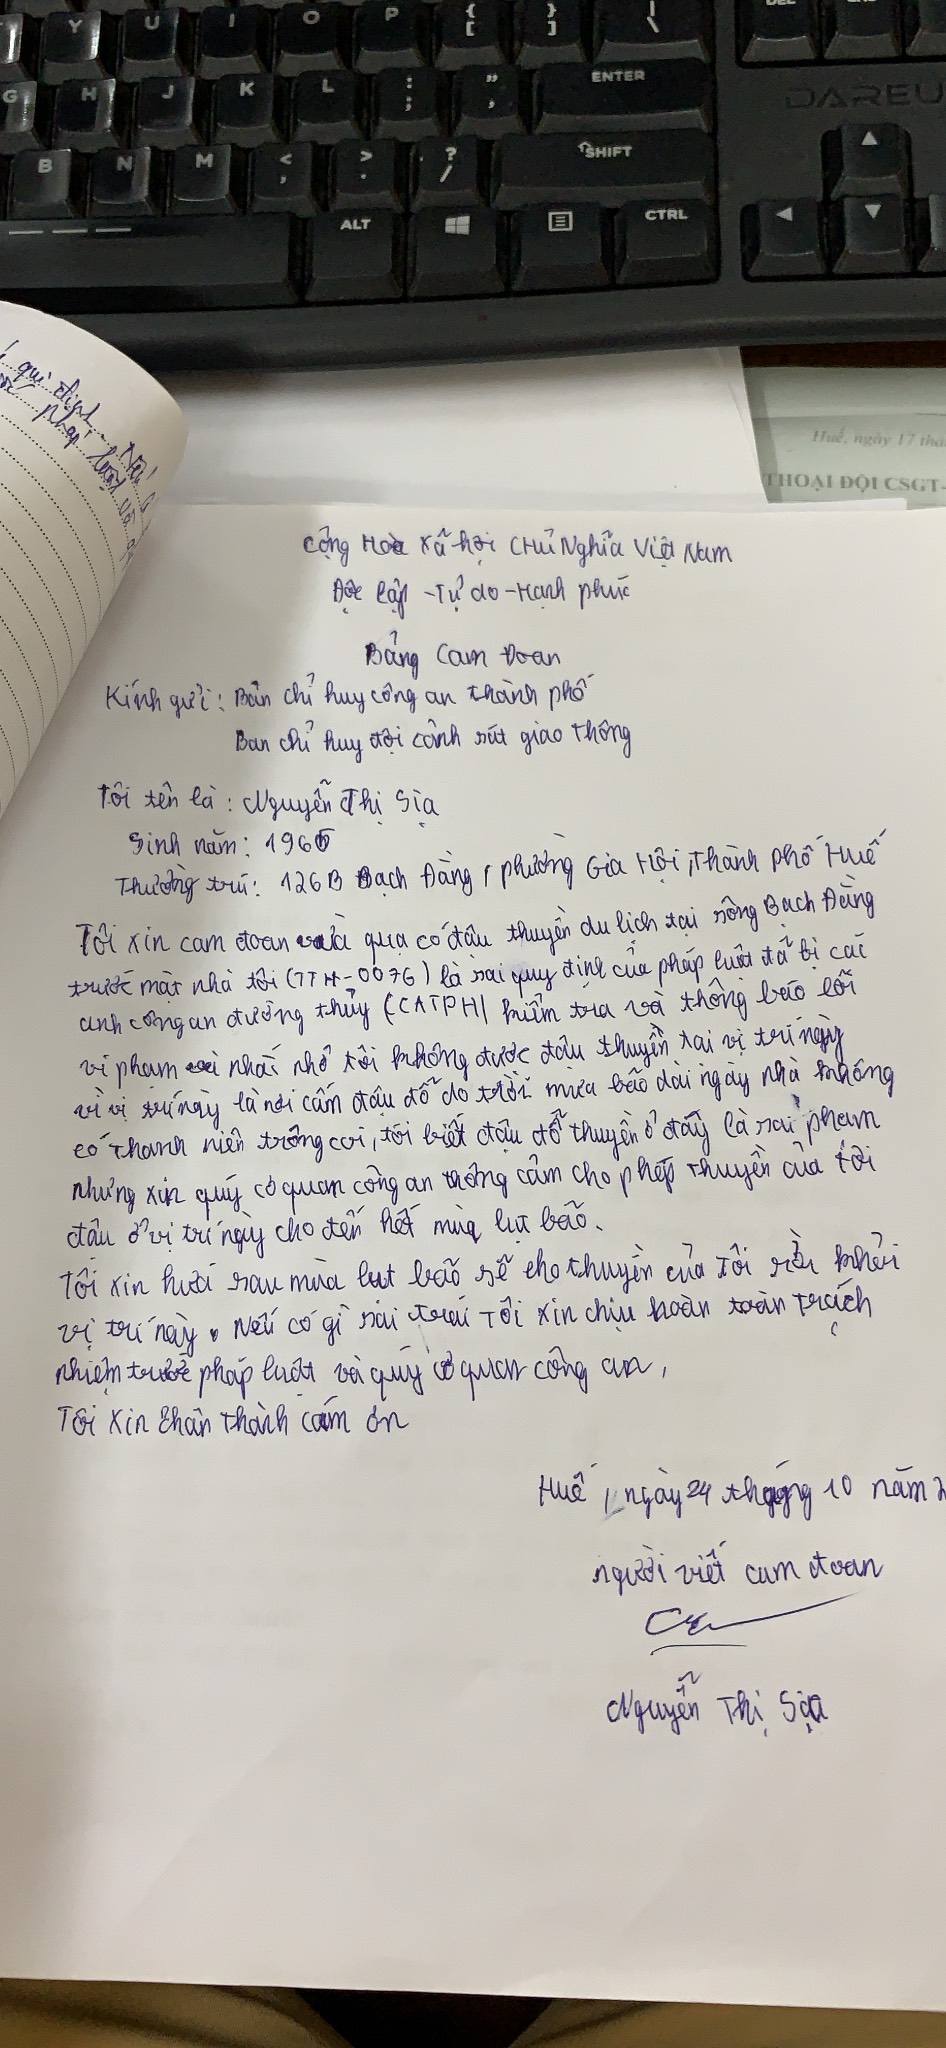 Y U I O P { [ } ] | \
G H J K L : ; " ' ENTER
B N M < , > . ? / SHIFT
ALT CTRL
DEL
DAREU
qui định. Nếu
pháp luật và
Huế, ngày 17 thá
THOẠI ĐỘI CSGT-
Cộng Hoà Xã hội Chủ Nghĩa Việt Nam
Độc lập - Tự do - Hạnh phúc
Bảng Cam Đoan
Kính gửi: Bản chỉ huy công an thành phố
Ban chỉ huy đội cảnh sát giao thông
Tôi tên là: Nguyễn Thị Sịa
Sinh năm: 1966
Thường trú: 126B Bạch Đằng, phường Gia Hội, Thành Phố Huế
Tôi xin cam đoan vừa qua có đậu thuyền du lịch tại sông Bạch Đằng
trước mặt nhà tôi (TTH-0076) là sai quy định của pháp luật đã bị các
anh công an đường thủy (CATPH) kiểm tra và thông báo lỗi
vi phạm nhắc nhở tôi không được đậu thuyền tại vị trí ngày
vì vị trí này là nơi cấm đậu đỗ do trời mưa bão dài ngày nhà không
có thanh niên trông coi, tôi biết đậu đỗ thuyền ở đây là sai phạm
nhưng xin quý cơ quan công an thông cảm cho phép thuyền của tôi
đậu ở vị trí ngày cho đến hết mùa lụt bão.
Tôi xin hứa sau mùa lụt bão sẽ cho thuyền của Tôi rời khỏi
vị trí này. Nếu có gì sai trái Tôi xin chịu hoàn toàn trách
nhiệm trước pháp luật và quý cơ quan công an,
Tôi xin chân thành cám ơn
Huế, ngày 24 tháng 10 năm 2
người viết cam đoan
Nguyễn Thị Sịa